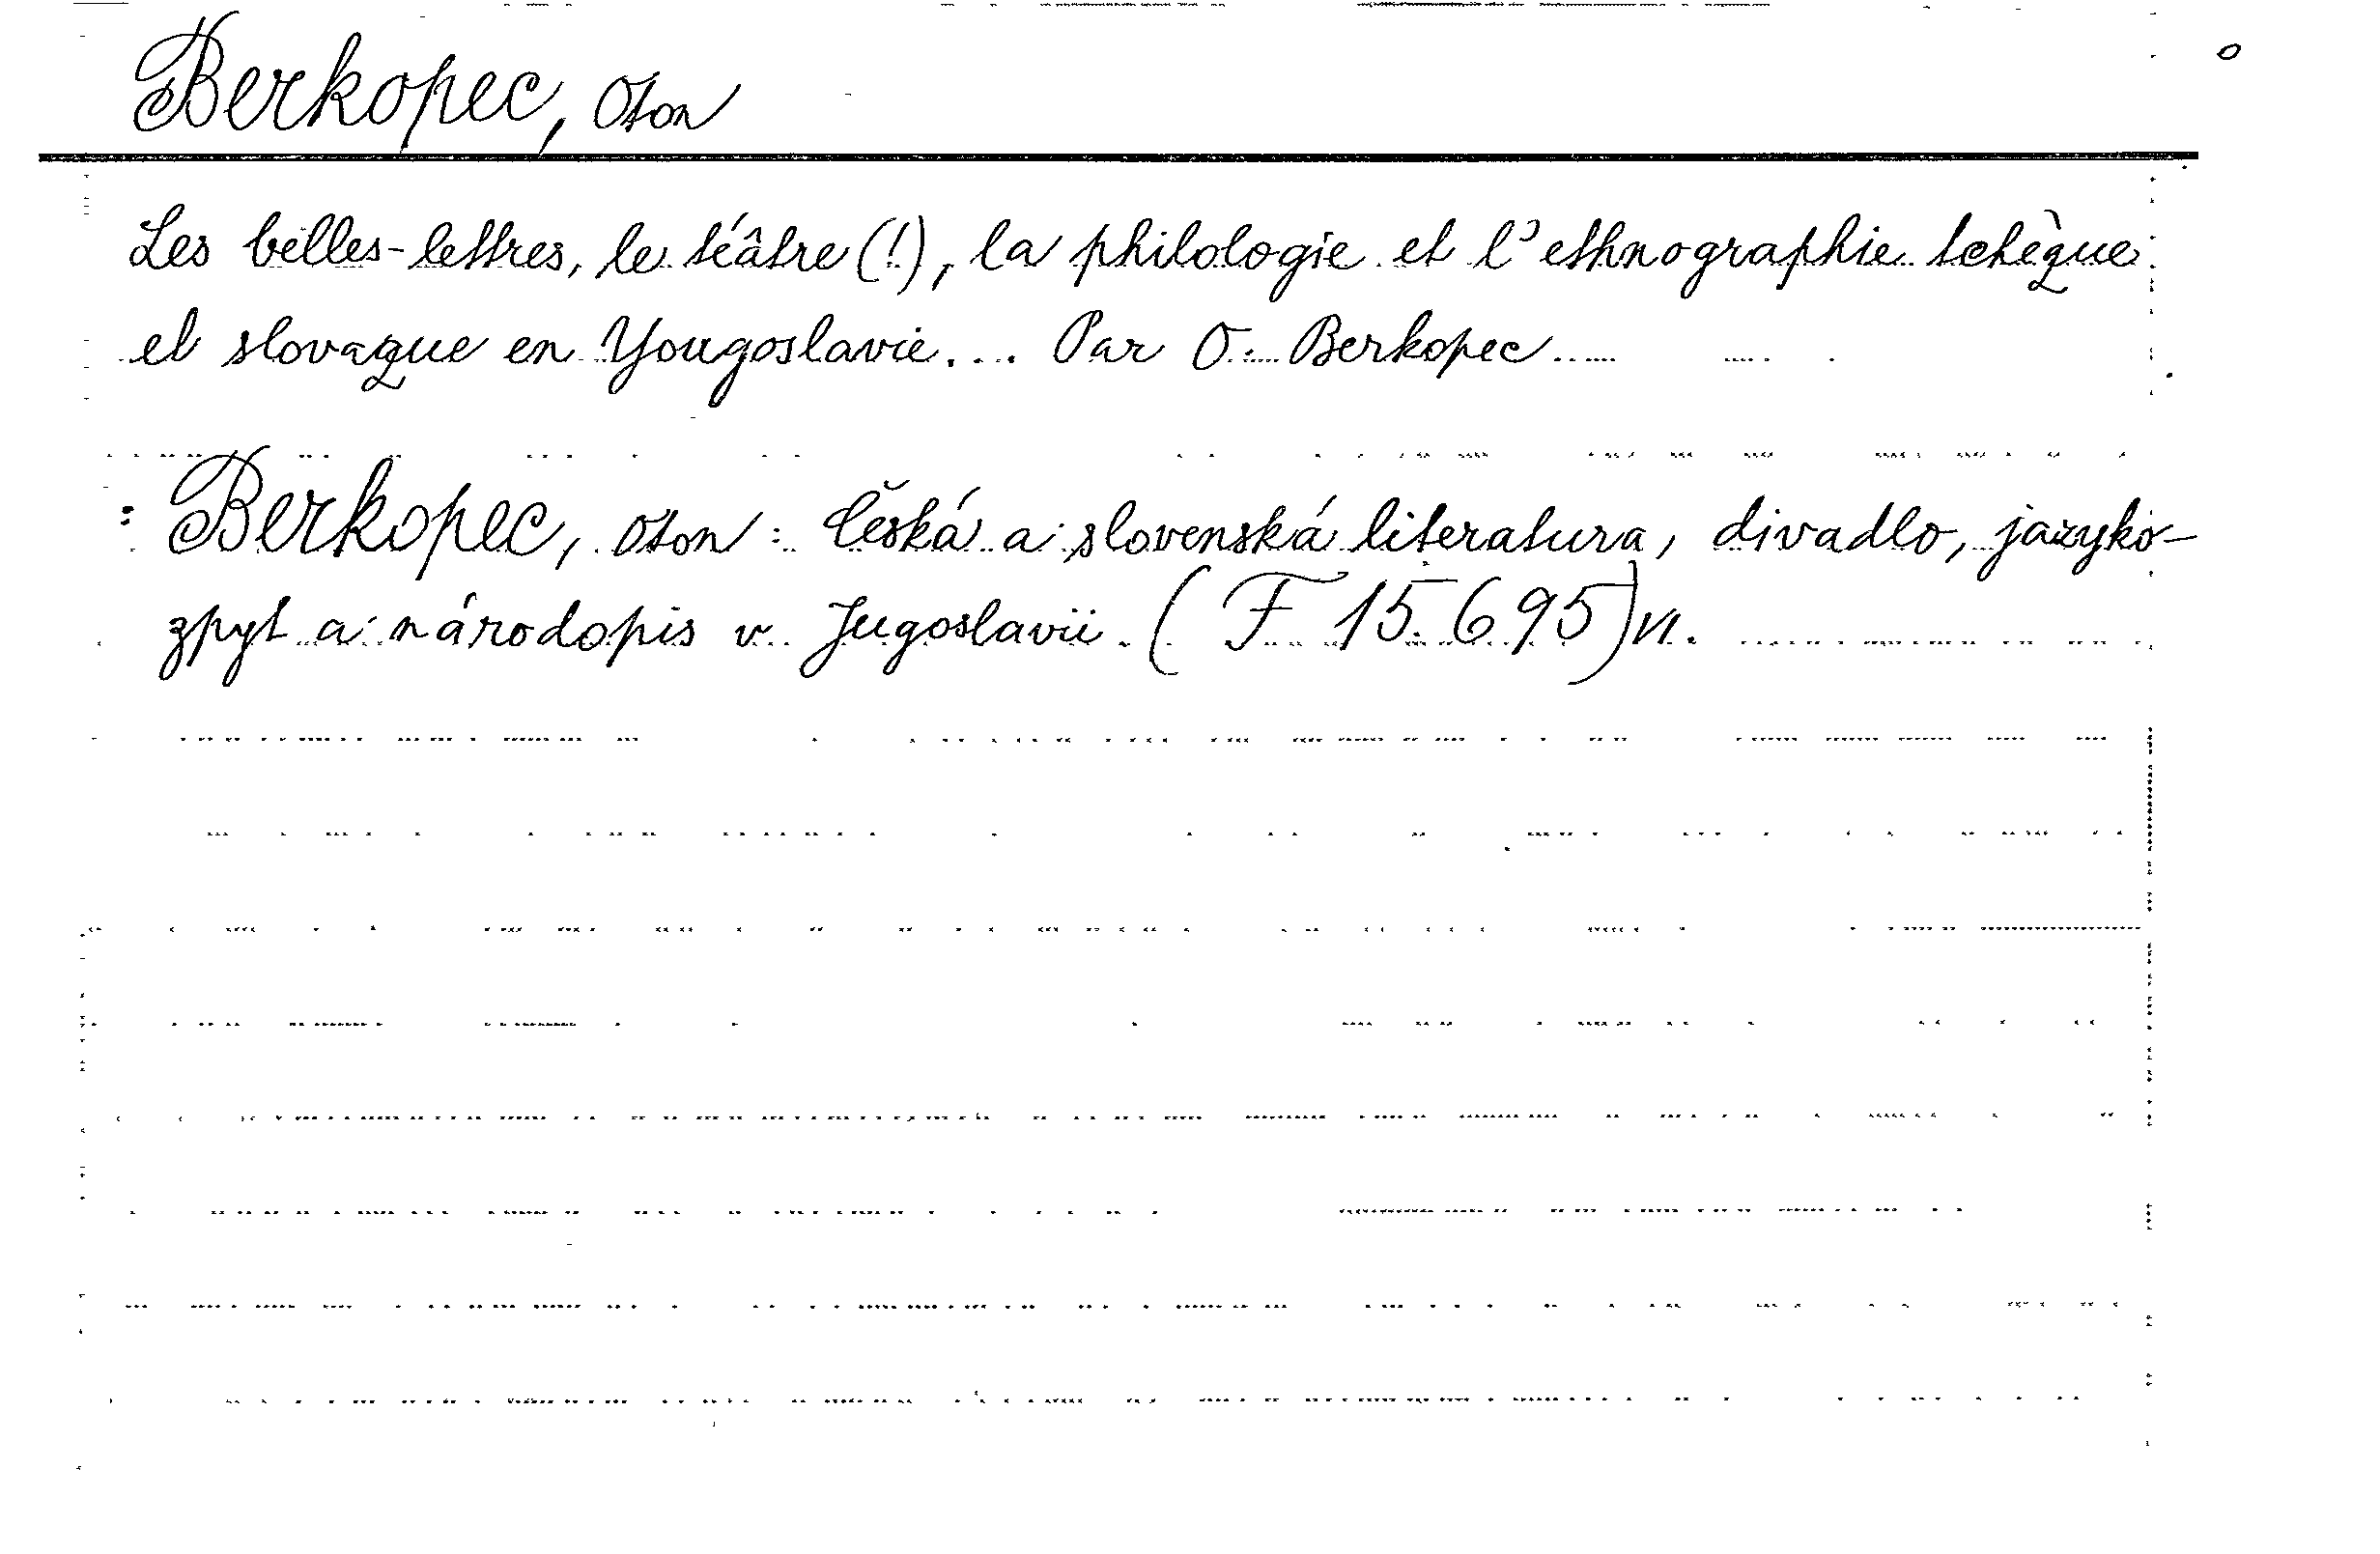 Berkopec, Oton
Les belles-lettres, le téâtre (!), la philologie et l'ethnographie tchèque
et slovaque en Yougoslavie... Par O. Berkopec
= Berkopec, Oton: Česká a slovenská literatura, divadlo, jazyko-
zpyt a národopis v Jugoslavii. (F 15.695) VI.